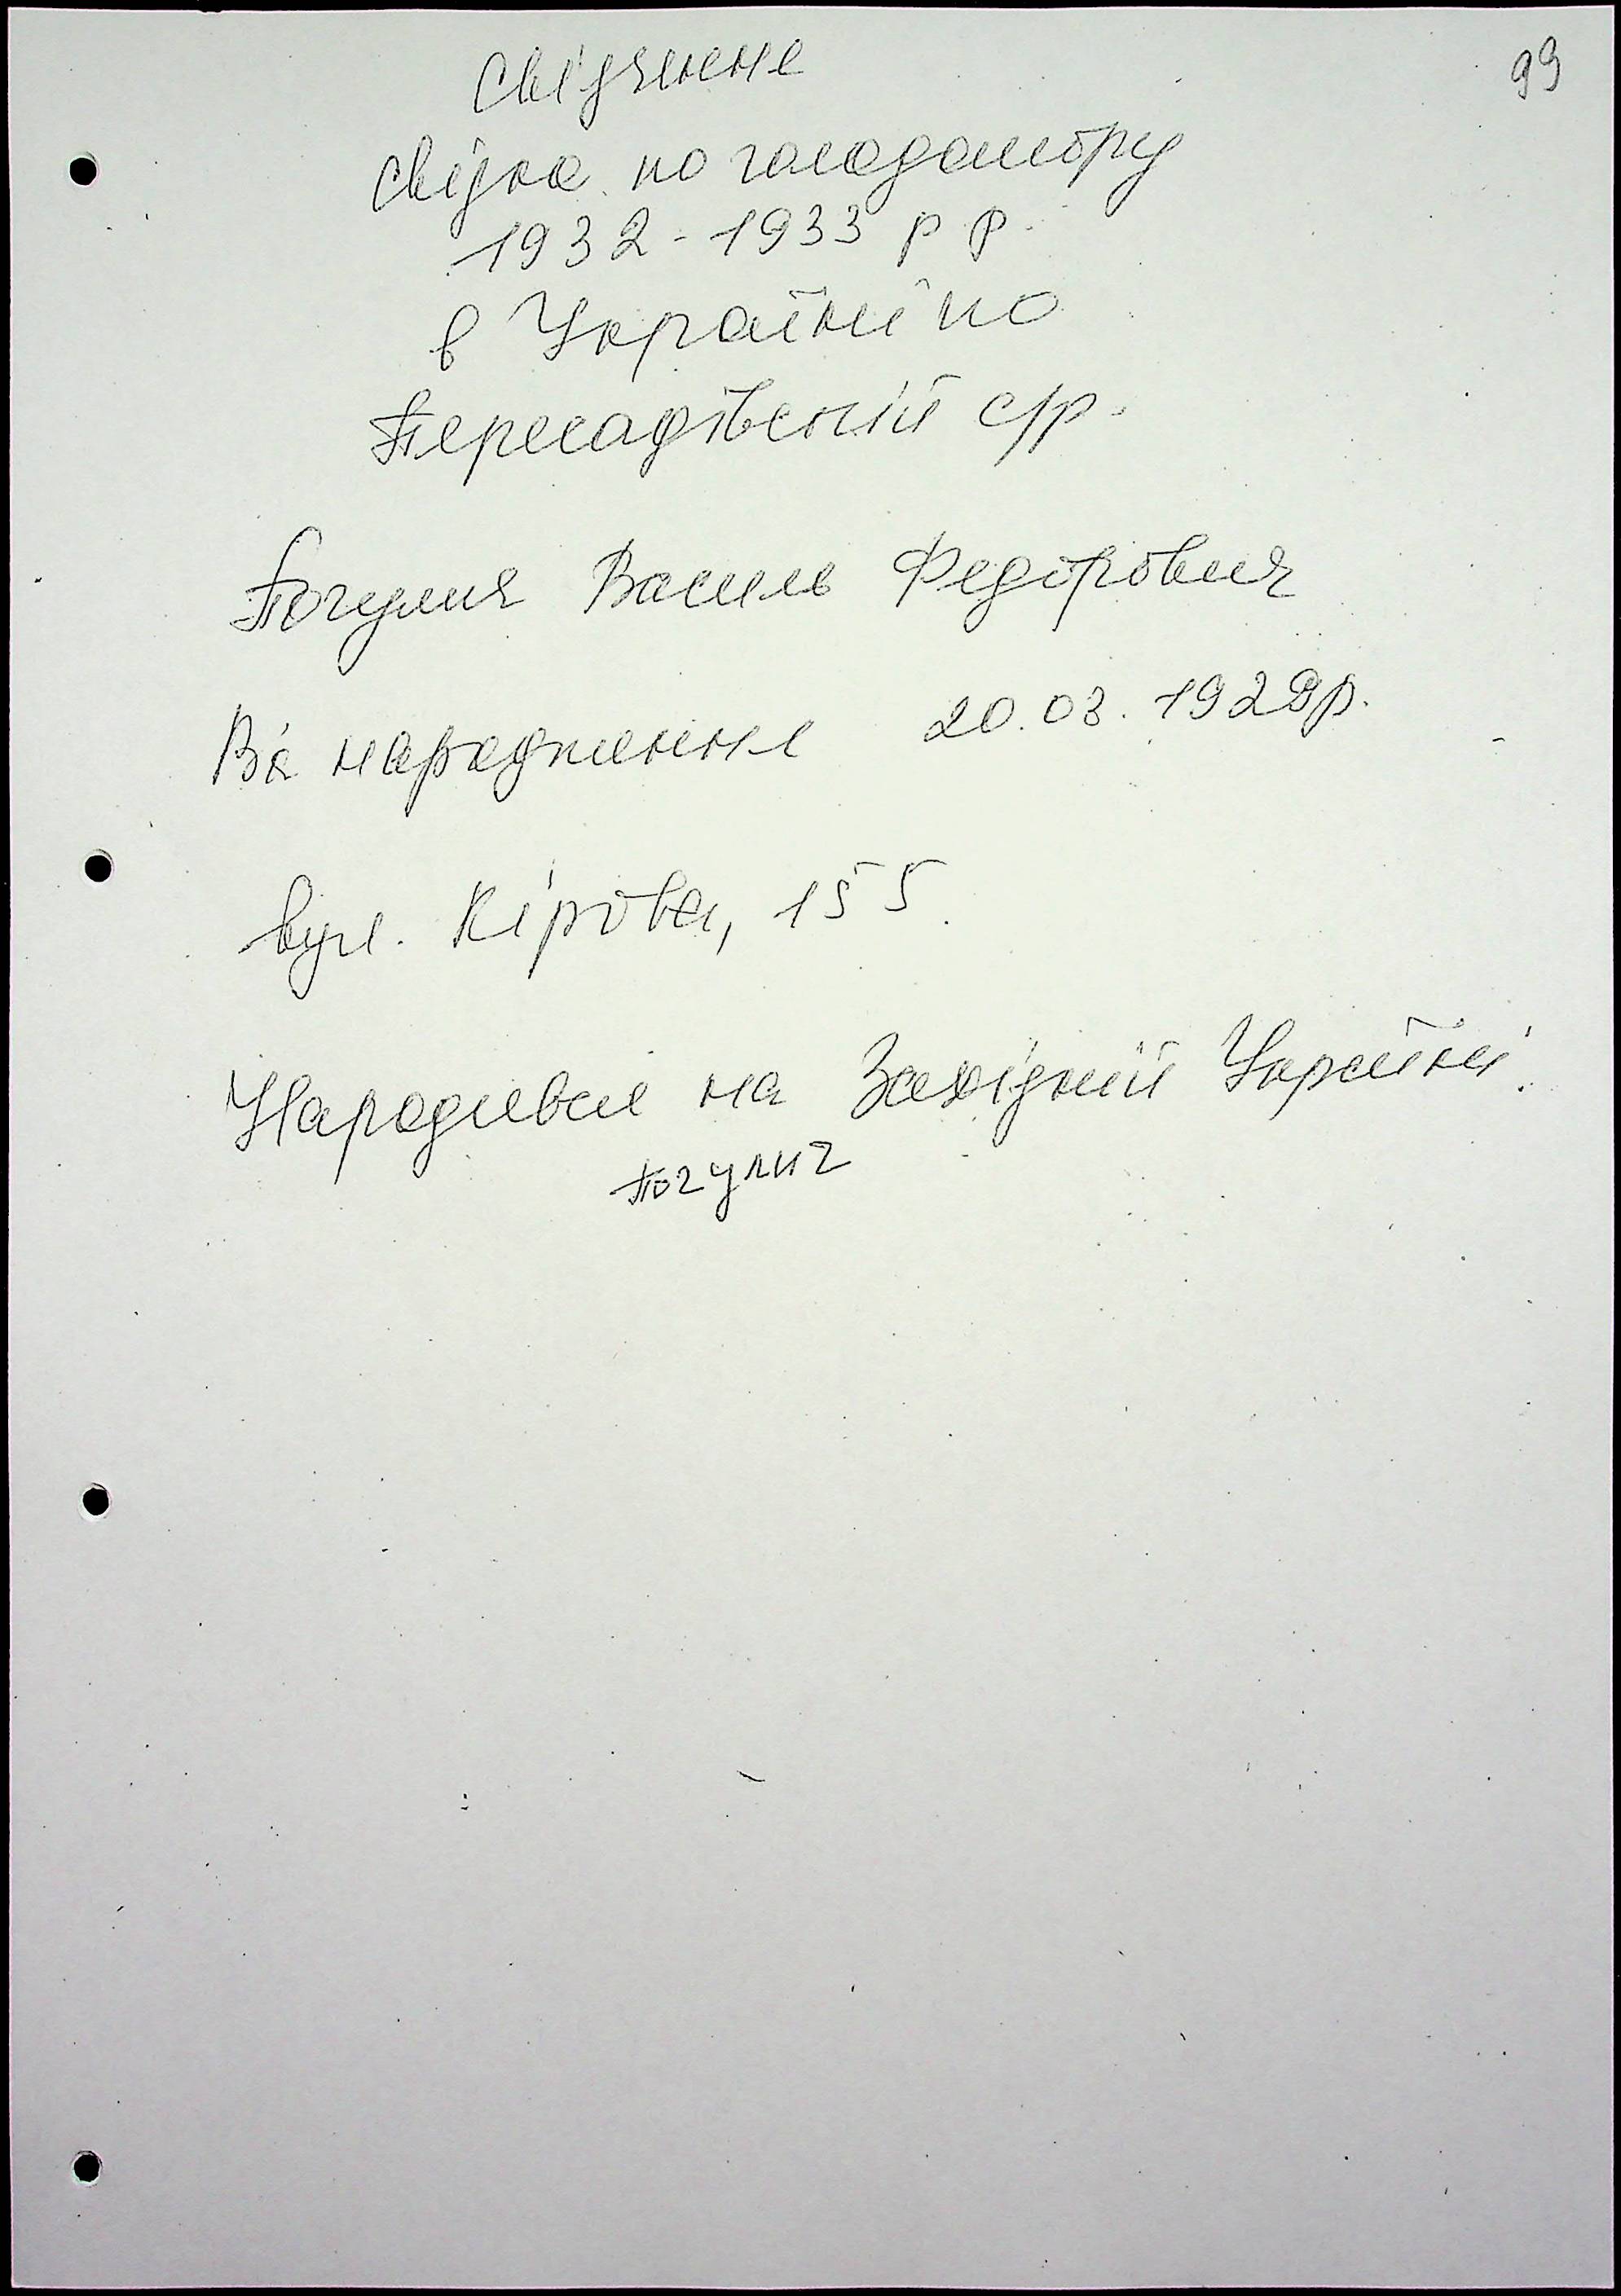 99
Свідчення
свідка по голодомору
1932-1933 р р.
в Україні по
Пересадівській с/р.
Погулич Василь Федорович
Рік народження 20.03.1929р.
вул. Кірова, 155.
Народився на Західній Україні.
Погулич